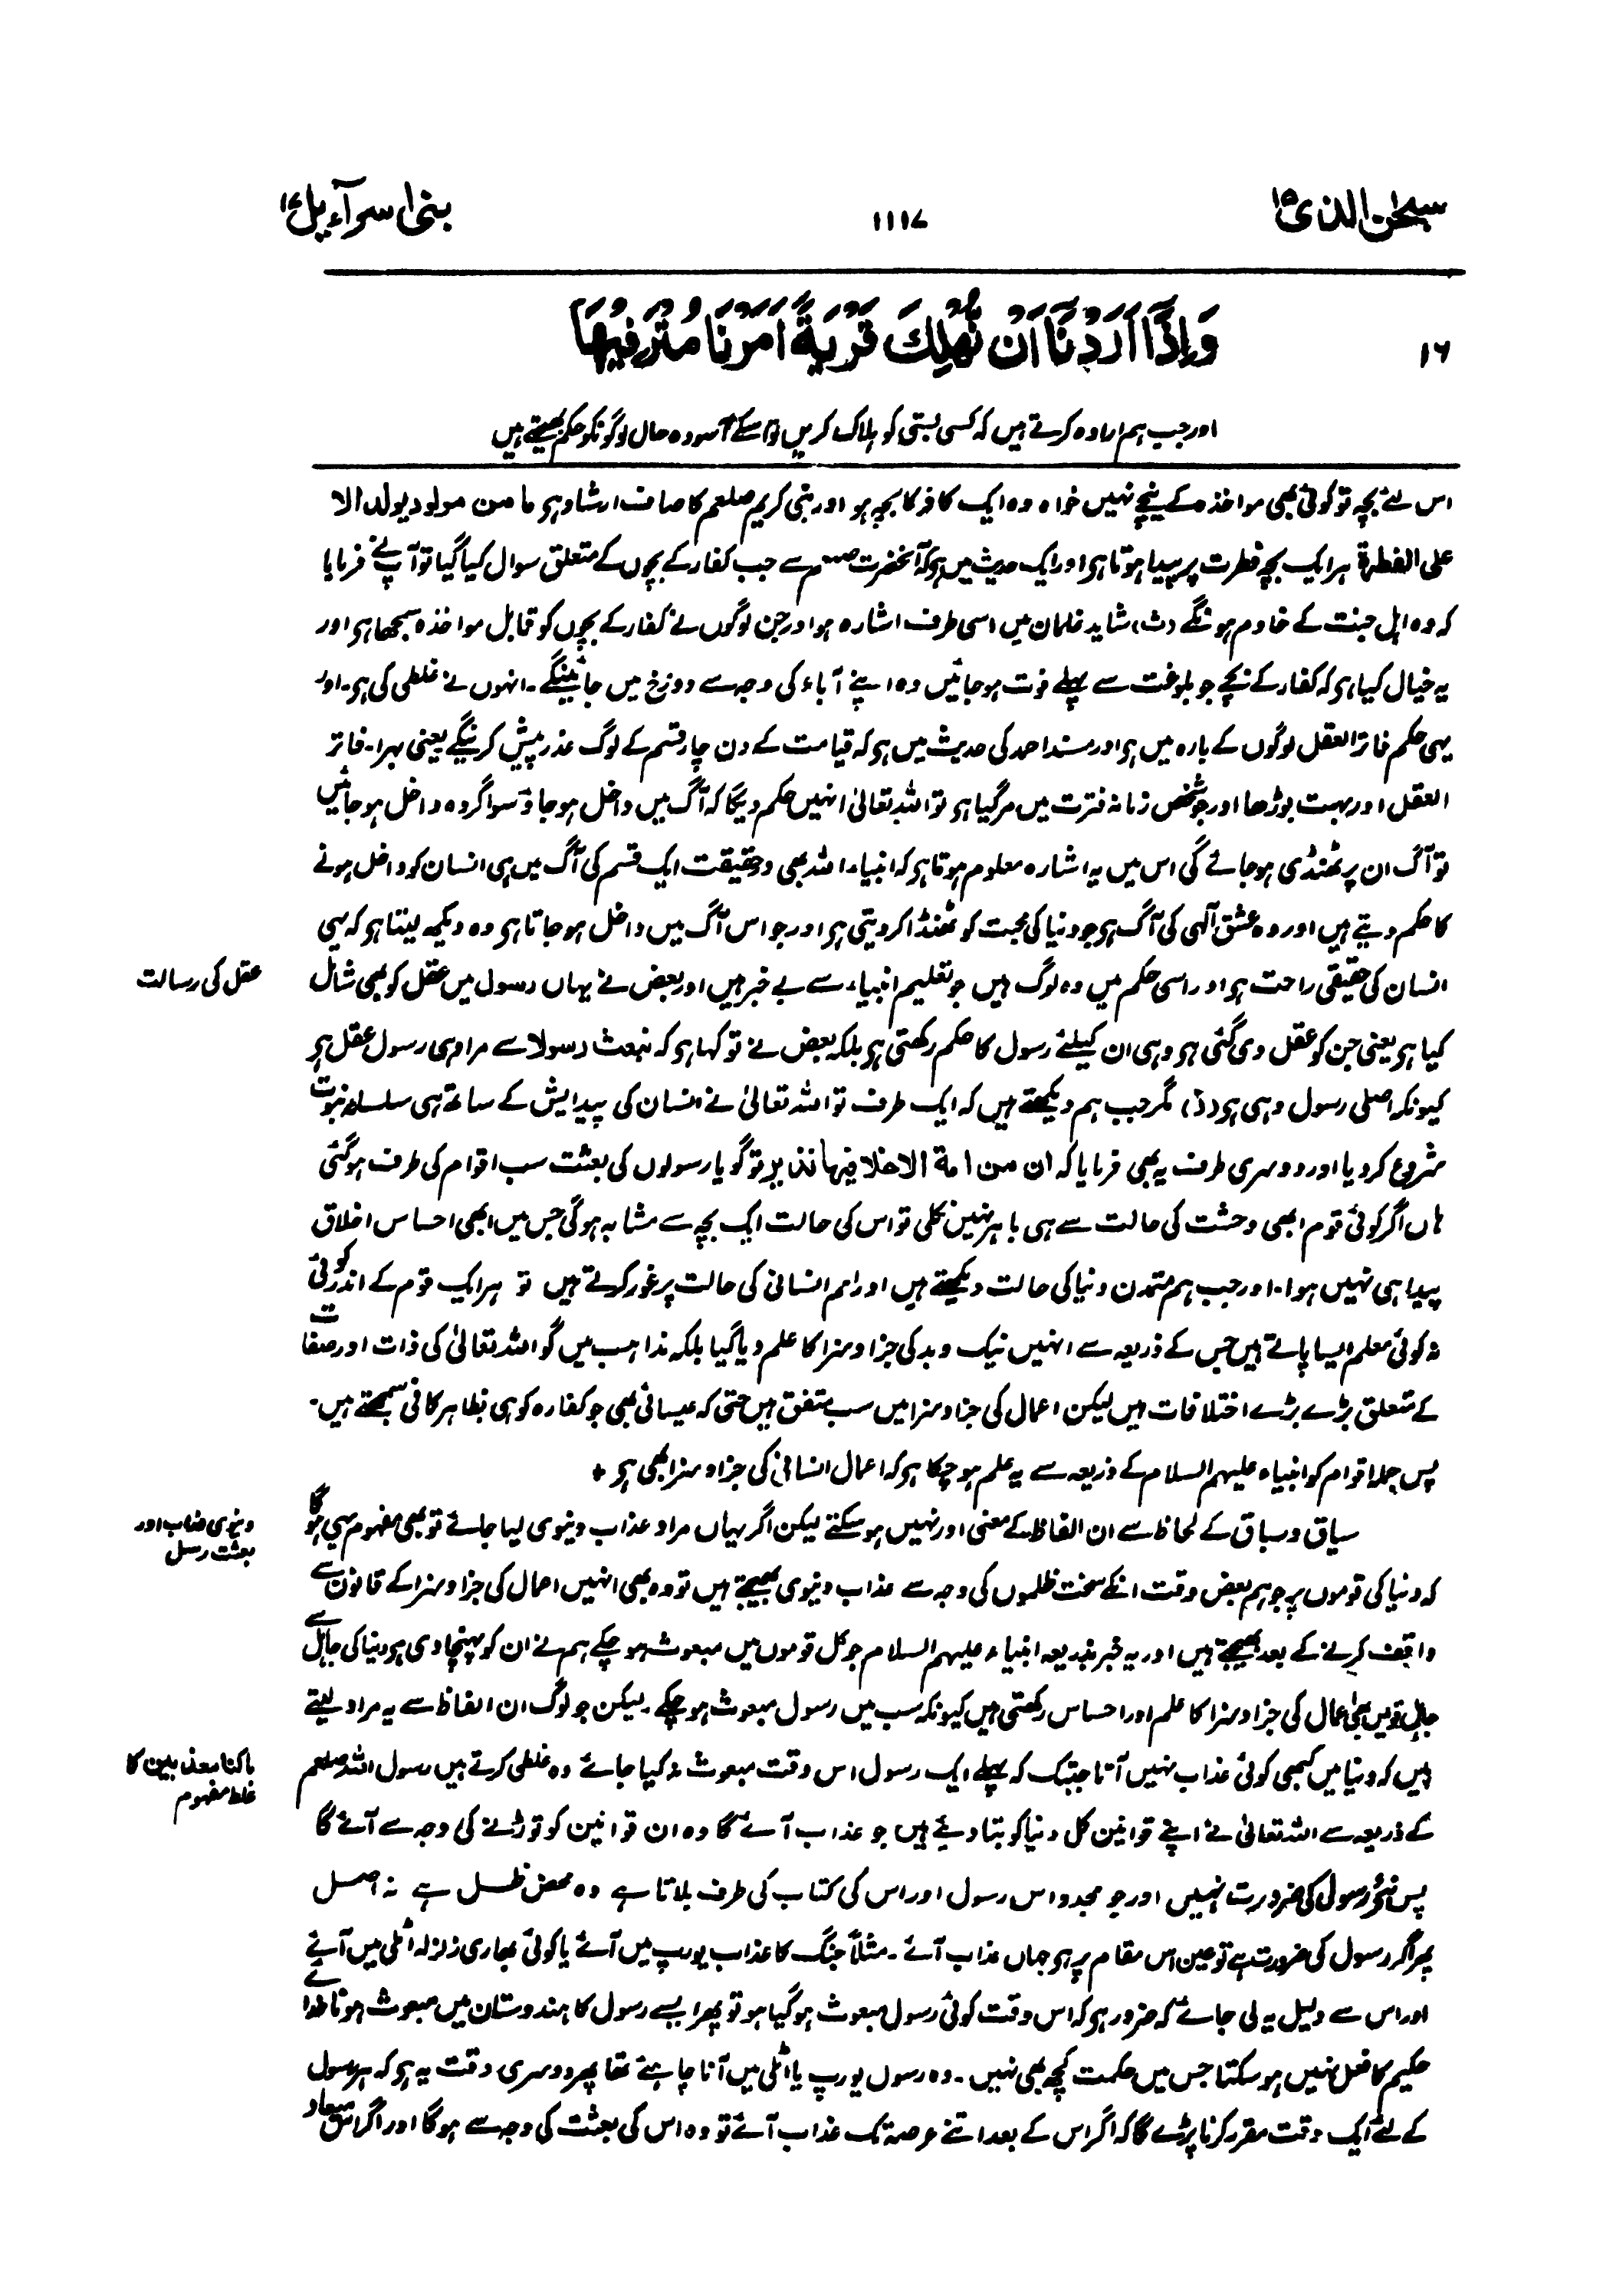 سبحٰن الذی ۱۵
۱۱۱۷
بنی اسرآءیل ۱۷
۱۶
وَاِذَآ اَرَدْنَآ اَنْ نُّهْلِكَ قَرْيَةً اَمَرْنَا مُتْرَفِيْهَا
اور جب ہم ارادہ کرتے ہیں کہ کسی بستی کو ہلاک کریں تو اسکے آسودہ حال لوگونکو حکم بھیجتے ہیں
اس لئے بچہ تو کوئی بھی مواخذہ کے نیچے نہیں خواہ وہ ایک کافر کا بچہ ہو اور نبی کریم صلعم کا صاف ارشاد ہو ما من مولود یولد الا
علی الفطرۃ ہر ایک بچہ فطرت پر پیدا ہوتا ہو اور ایک حدیث میں ہو کہ آنحضرت صلعم سے جب کفار کے بچوں کے متعلق سوال کیا گیا تو آپ نے فرمایا
کہ وہ اہل جنت کے خادم ہونگے (ث) شاید غلمان میں اسی طرف اشارہ ہو اور جن لوگوں نے کفار کے بچوں کو قابل مواخذہ سمجھا ہو اور
یہ خیال کیا ہو کہ کفار کے بچے جو بلوغت سے پہلے فوت ہو جائیں وہ اپنے آباء کی وجہ سے دوزخ میں جائینگے۔ انہوں نے غلطی کی ہو۔ اور
یہی حکم فاتر العقل لوگوں کے بارہ میں ہو اور مسند احمد کی حدیث میں ہو کہ قیامت کے دن چار قسم کے لوگ عذر پیش کرینگے یعنی بہرا۔ فاتر
العقل اور بہت بوڑھا اور جو شخص زمانہ فترت میں مر گیا ہو تو اللہ تعالیٰ انہیں حکم دیگا کہ آگ میں داخل ہو جاؤ سو اگر وہ داخل ہو جائیں
تو آگ ان پر ٹھنڈی ہو جائے گی اس میں یہ اشارہ معلوم ہوتا ہو کہ انبیاء اللہ بھی درحقیقت ایک قسم کی آگ میں ہی انسان کو داخل ہونے
کا حکم دیتے ہیں اور وہ عشق الٰہی کی آگ ہو جو دنیا کی محبت کو ٹھنڈا کر دیتی ہو اور جو اس آگ میں داخل ہو جاتا ہو وہ دیکھ لیتا ہو کہ یہی
انسان کی حقیقی راحت ہو اور اسی حکم میں وہ لوگ ہیں جو تعلیم انبیاء سے بے خبر ہیں اور بعض نے یہاں رسول میں عقل کو بھی شامل
عقل کی رسالت
کیا ہو یعنی جن کو عقل دی گئی ہو وہی ان کیلئے رسول کا حکم رکھتی ہو بلکہ بعض نے تو کہا ہو کہ نبعث رسولا سے مراد ہی رسول عقل ہو
کیونکہ اصلی رسول وہی ہو (ر) مگر جب ہم دیکھتے ہیں کہ ایک طرف تو اللہ تعالیٰ نے انسان کی پیدایش کے ساتھ ہی سلسلہ نبوت
شروع کر دیا اور دوسری طرف یہ بھی فرمایا کہ ان من امة الاخلا فیها نذیر تو گویا رسولوں کی بعثت سب اقوام کی طرف ہو گئی
ہاں اگر کوئی قوم ابھی وحشت کی حالت سے ہی باہر نہیں نکلی تو اس کی حالت ایک بچہ سے مشابہ ہو گی جس میں ابھی احساس اخلاق
پیدا ہی نہیں ہوا۔ اور جب ہم متمدن دنیا کی حالت دیکھتے ہیں اور امم انسانی کی حالت پر غور کرتے ہیں تو ہر ایک قوم کے اندر کوئی
نہ کوئی معلم ایسا پاتے ہیں جس کے ذریعہ سے انہیں نیک و بد کی جزا و سزا کا علم دیا گیا بلکہ مذاہب میں گو اللہ تعالیٰ کی ذات اور صفات
کے متعلق بڑے بڑے اختلافات ہیں لیکن اعمال کی جزا و سزا میں سب متفق ہیں حتی کہ عیسائی بھی جو کفارہ کو ہی بظاہر کافی سمجھتے ہیں۔
پس جملہ اقوام کو انبیاء علیہم السلام کے ذریعہ سے یہ علم ہو چکا ہو کہ اعمال انسانی کی جزا و سزا بھی ہو ٭
سیاق و سباق کے لحاظ سے ان الفاظ کے معنی اور نہیں ہو سکتے لیکن اگر یہاں مراد عذاب دنیوی لیا جائے تو بھی مفہوم یہی ہو گا
دنیوی عذاب اور
بعثت رسل
کہ دنیا کی قوموں پر جو ہم بعض وقت انکے سخت ظلموں کی وجہ سے عذاب دنیوی بھیجتے ہیں تو وہ بھی انہیں اعمال کی جزا و سزا کے قانون سے
واقف کرنے کے بعد بھیجتے ہیں اور یہ خبر بذریعہ انبیاء علیہم السلام جو کل قوموں میں مبعوث ہو چکے ہم نے ان کو پہنچا دی ہو دنیا کی جاہل سے
جاہل قومیں بھی اعمال کی جزا و سزا کا علم اور احساس رکھتی ہیں کیونکہ سب میں رسول مبعوث ہو چکے۔ لیکن جو لوگ ان الفاظ سے یہ مراد لیتے
ہیں کہ دنیا میں کبھی کوئی عذاب نہیں آتا جبتک کہ پہلے ایک رسول اس وقت مبعوث نہ کیا جائے وہ غلطی کرتے ہیں رسول اللہ صلعم
ما کنا معذبین کا
غلط مفہوم
کے ذریعہ سے اللہ تعالیٰ نے اپنے قوانین کل دنیا کو بتا دیئے ہیں جو عذاب آئے گا وہ ان قوانین کو توڑنے کی وجہ سے آئے گا
پس نئے رسول کی ضرورت نہیں اور جو مجدد اس رسول اور اس کی کتاب کی طرف بلاتا ہے وہ محض ظل ہے نہ اصل
پھر اگر رسول کی ضرورت ہے تو عین اس مقام پر ہو جہاں عذاب آئے۔ مثلاً جنگ کا عذاب یورپ میں آئے یا کوئی بھاری زلزلہ اٹلی میں آئے
اور اس سے دلیل یہ لی جائے کہ ضرور ہو کہ اس وقت کوئی رسول مبعوث ہو گیا ہو تو پھر ایسے رسول کا ہندوستان میں مبعوث ہونا خدائے
حکیم کا فعل نہیں ہو سکتا جس میں حکمت کچھ بھی نہیں۔ وہ رسول یورپ یا اٹلی میں آنا چاہئے تھا پھر دوسری دقت یہ ہو کہ ہر رسول
کے لئے ایک وقت مقرر کرنا پڑے گا کہ اگر اس کے بعد اتنے عرصہ تک عذاب آئے تو وہ اس کی بعثت کی وجہ سے ہو گا اور اگر اس میعاد